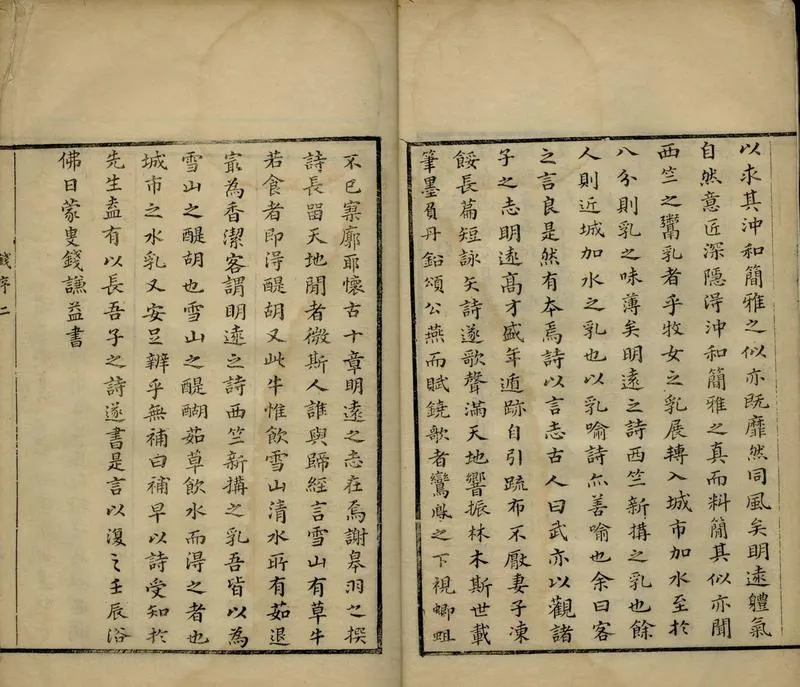 以求其沖和簡雅之似亦既靡然同風矣明遠體氣
自然意匠深隱得沖和簡雅之真而料簡其似亦聞
西竺之鬻乳者乎牧女之乳展轉入城市加水至於
八分則乳之味薄矣明遠之詩西竺新搆之乳也餘
人則近城加水之乳也以乳喻詩尒善喻也余曰客
之言良是然有本焉詩以言志古人曰武亦以觀諸
子之志明遠高才盛年遁跡自引疏布不厭妻子凍
餒長篇短詠矢詩遂歌聲滿天地響振林木斯世載
筆墨負丹鉛頌公燕而賦鐃歌者鸞鳳之下視蝍蛆
不已寥廓耶懷古十章明遠之志在焉謝皋羽之撰
詩長留天地間者微斯人誰與歸經言雪山有草牛
若食者即得醍胡又此牛惟飲雪山清水所有茹退
最為香潔客謂明遠之詩西竺新搆之乳吾皆以為
雪山之醍胡也雪山之醍醐茹草飲水而得之者也
城市之水乳又安足辨乎無補曰補早以詩受知於
先生盍有以長吾子之詩遂書是言以復之壬辰浴
佛日蒙叟錢謙益書
錢序二